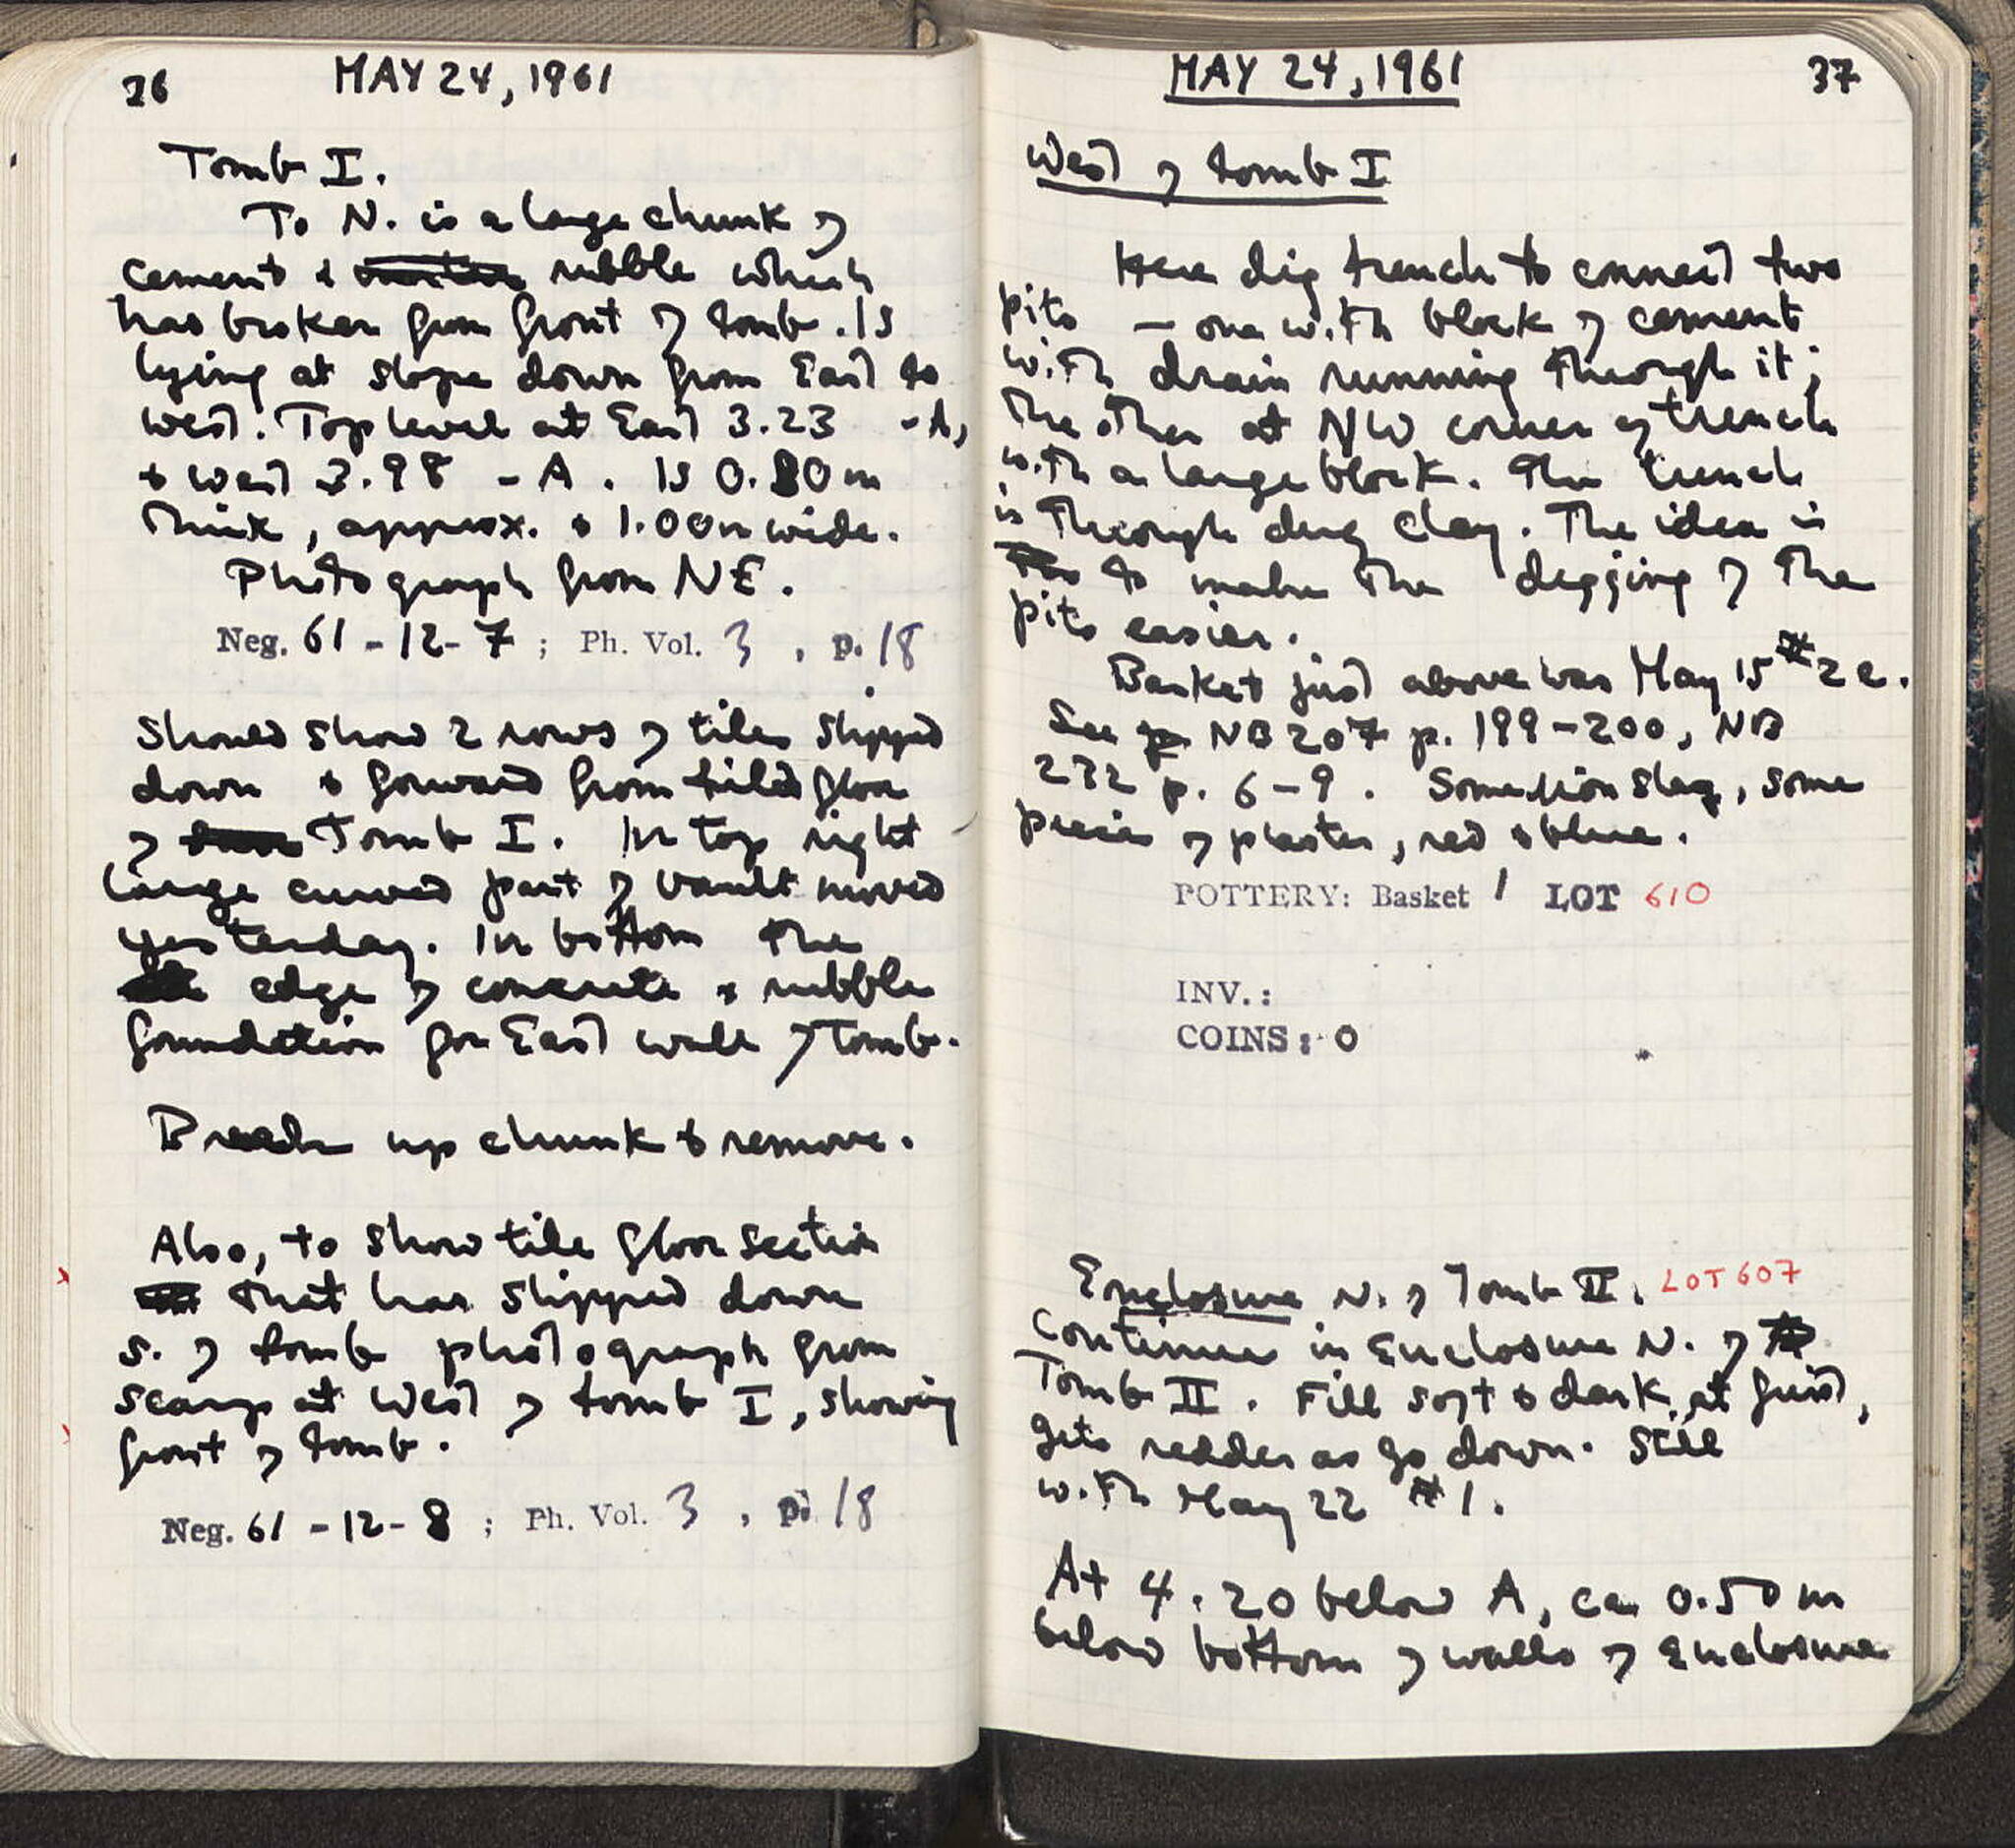 36
MAY 24, 1961
Tomb I.
To N. is a large chunk of
cement & rubble which
has broken from front of tomb. Is
lying at slope down from East to
West. Top level at East 3.23 -A,
& West 3.98 - A. Is 0.80m
thick, approx. & 1.00m wide.
Photograph from NE.
Neg. 61-12-7 ; Ph. Vol. 3 , p. 18
Should show 2 rows of tiles slipped
down & forward from tiled floor
of Tomb I. In top right
large curved part of vault moved
yesterday. In bottom the
edge of concrete & rubble
foundation for East wall of Tomb.
Break up chunk & remove.
Also, to show tile floor section
that has slipped down
S. of tomb photograph from
scarp at West of tomb I, showing
front of tomb.
Neg. 61-12-8 ; Ph. Vol. 3 , p. 18
MAY 24, 1961
37
West of tomb I
Here dig trench to connect two
pits — one with block of cement
with drain running through it;
the other at NW corner of trench
with a large block. The trench
is through dug clay. The idea is
to make the digging of the
pits easier.
Basket just above was May 15 #2 e.
See NB 207 p. 199-200, NB
232 p. 6-9. Some iron slag, some
pieces of plaster, red & blue.
POTTERY: Basket 1 LOT 610
INV.:
COINS: 0
Enclosure N. of Tomb II. LOT 607
Continue in Enclosure N. of
Tomb II. Fill soft & dark at first,
gets redder as go down. Still
with May 22 #1.
At 4.20 below A, ca 0.50m
below bottom of walls of Enclosure